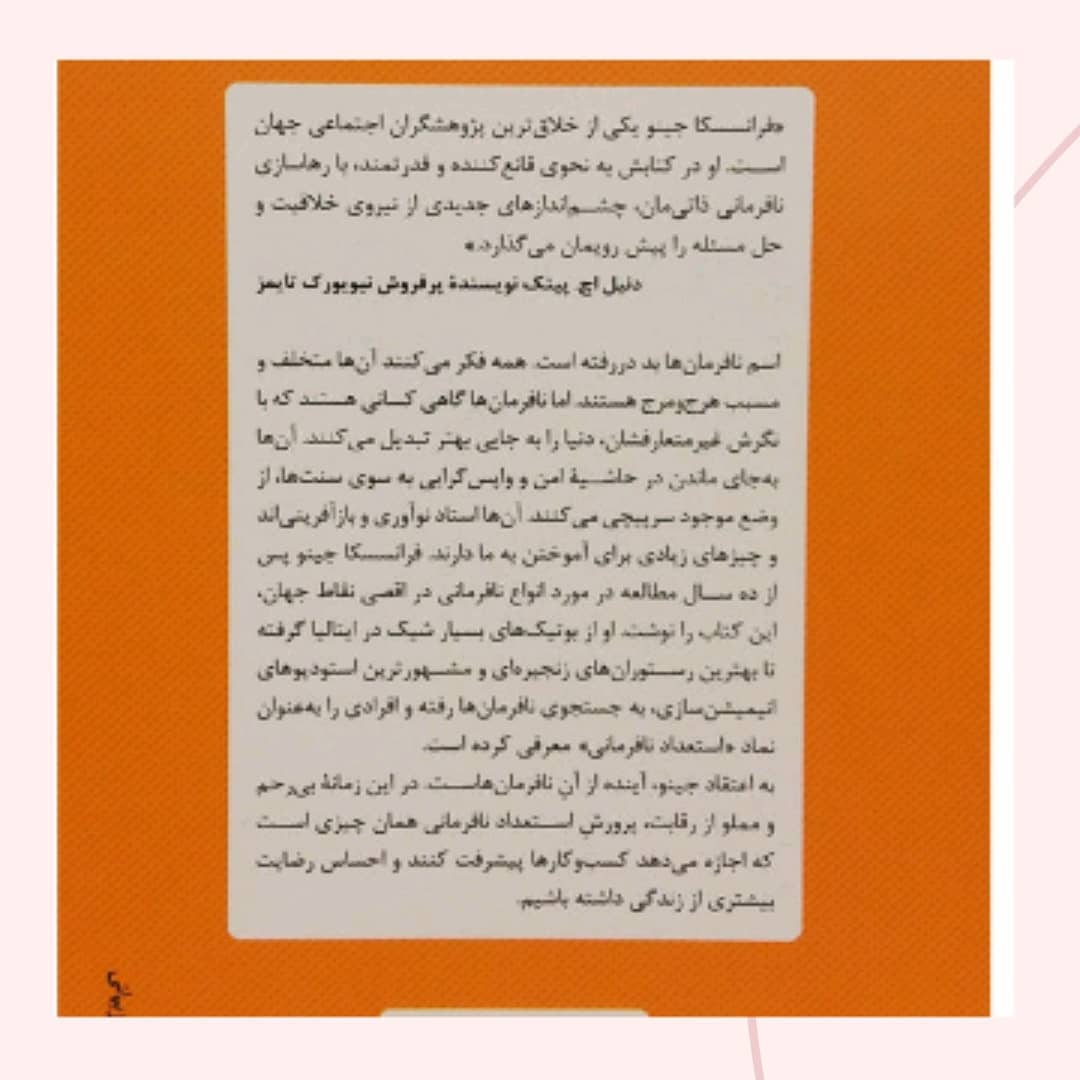 «فرانسسکا جینو یکی از خلاق‌ترین پژوهشگران اجتماعی جهان
است. او در کتابش به نحوی قانع‌کننده و قدرتمند، با رهاسازی
نافرمانی ذاتی‌مان، چشم‌اندازهای جدیدی از نیروی خلاقیت و
حل مسئله را پیش رویمان می‌گذارد.»
دنیل اچ. پینک نویسندهٔ پرفروش نیویورک تایمز
اسم نافرمان‌ها بد دررفته است. همه فکر می‌کنند آن‌ها متخلف و
مسبب هرج‌ومرج هستند. اما نافرمان‌ها گاهی کسانی هستند که با
نگرش غیرمتعارفشان، دنیا را به جایی بهتر تبدیل می‌کنند. آن‌ها
به‌جای ماندن در حاشیهٔ امن و واپس‌گرایی به سوی سنت‌ها، از
وضع موجود سرپیچی می‌کنند. آن‌ها استاد نوآوری و بازآفرینی‌اند
و چیزهای زیادی برای آموختن به ما دارند. فرانسسکا جینو پس
از ده سال مطالعه در مورد انواع نافرمانی در اقصی نقاط جهان،
این کتاب را نوشت. او از بوتیک‌های بسیار شیک در ایتالیا گرفته
تا بهترین رستوران‌های زنجیره‌ای و مشهورترین استودیوهای
انیمیشن‌سازی، به جستجوی نافرمان‌ها رفته و افرادی را به‌عنوان
نماد «استعداد نافرمانی» معرفی کرده است.
به اعتقاد جینو، آینده از آنِ نافرمان‌هاست. در این زمانهٔ بی‌رحم
و مملو از رقابت، پرورشِ استعداد نافرمانی همان چیزی است
که اجازه می‌دهد کسب‌وکارها پیشرفت کنند و احساس رضایت
بیشتری از زندگی داشته باشیم.